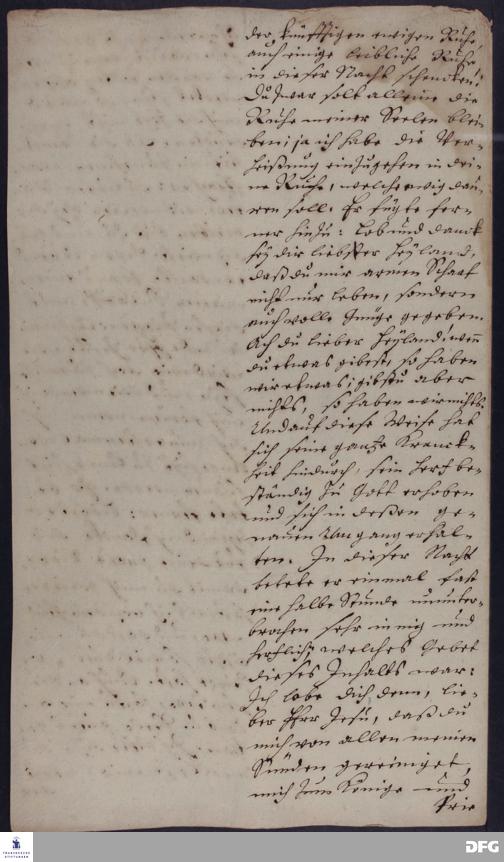 der künfftigen ewigen Ruhe
auch einige leibliche Ruhe
in dieser Nacht schencken!
Du zwar solt alleine die
Ruhe meiner Seelen blei-
ben; ja ich habe die Ver-
heißung einzugehen in dei-
ne Ruhe, welche ewig dau-
ren soll. Er fügte fer-
ner hinzu: Lob und danck
sey dir liebster Heyland,
daß du mir armen Schaaf
nicht nur leben, sondern
auch volle Gnüge gegeben.
Ach du lieber Heyland! weñ
du etwas gibest, so haben
wir etwas; gibstu aber
nichts, so haben wir nichts.
Und auf diese Weise hat
sich seine gantze Kranck-
heit hindurch, sein Hertz be-
ständig zu Gott erhoben
und sich in deßen ge-
nauen Umgang erhal-
ten. In dieser Nacht
betete er einmal fast
eine halbe Stunde ununter-
brochen sehr innig und
hertzlich, welches Gebet
dieses Inhalts war:
Ich lobe dich denn, lie-
ber HErr Jesu, daß du
mich von allen meinen
Sünden gereiniget,
mich zum Könige und
Prie
FRANCKESCHE
STIFTUNGEN
DFG